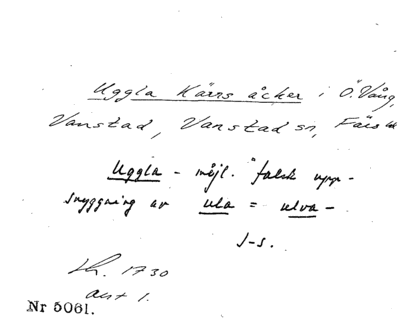 Uggla Kärrs åcker i Ö. Vång,
Vanstad, Vanstad sn, Färs hd
Uggla - möjl. falsk upp-
snyggning av ula = ulva -
J-s.
Lh. 1730
akt 1.
Nr 5061.